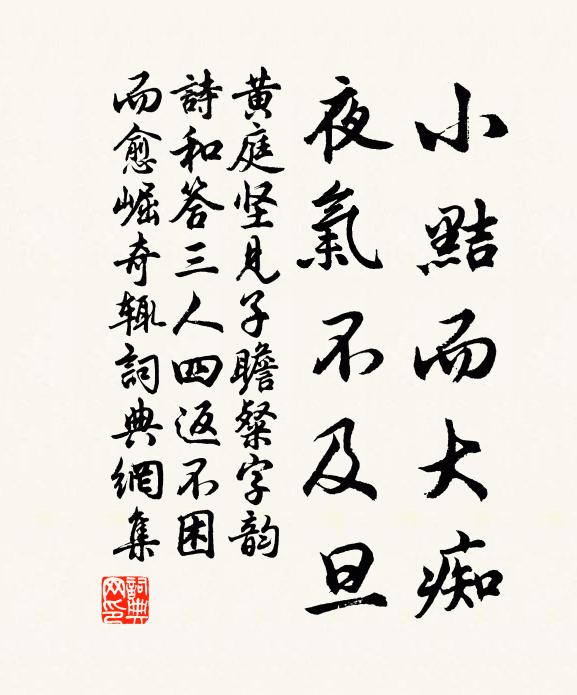 小黠而大痴
夜氣不及旦
黄庭坚見子瞻粲字韵
詩和答三人四返不困
而愈崛奇辄詞典網集
詞典
网印